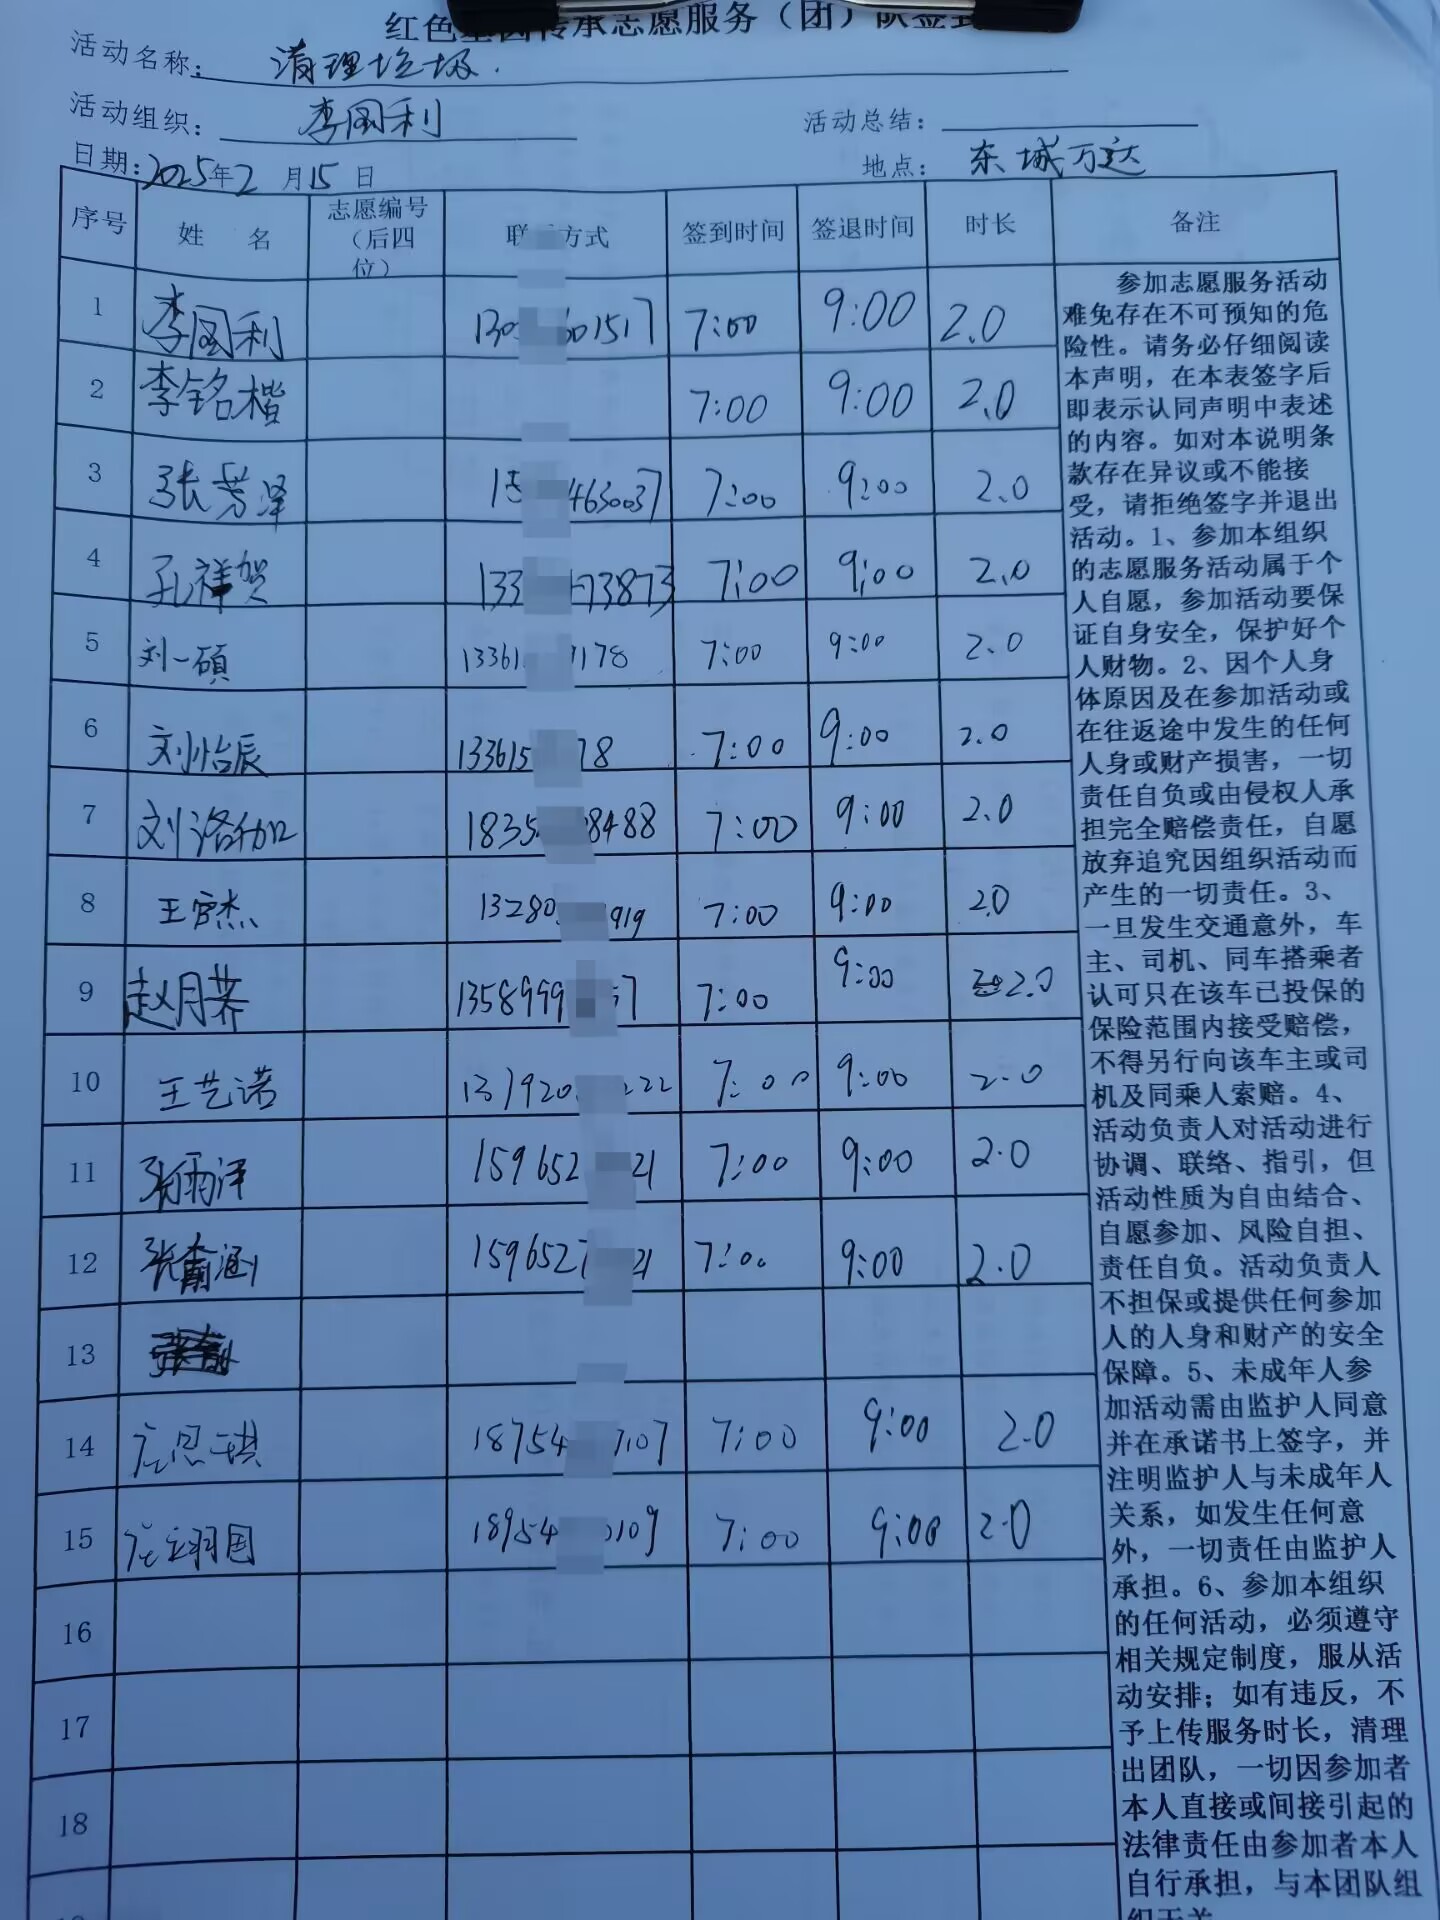 红色基因传承志愿服务（团）队签到
活动名称： 清理垃圾.
活动组织： 李国利 活动总结：
日期: 2025年2 月15 日 地点： 东城万达
序号 姓 名 志愿编号（后四位） 联 方式 签到时间 签退时间 时长 备注
1 李国利 130 601517 7:00 9:00 2.0
2 李铭楷 7:00 9:00 2.0
3 张芳泽 15 4630037 7:00 9:00 2.0
4 孔祥贺 133 73873 7:00 9:00 2.0
5 刘一硕 13361 178 7:00 9:00 2.0
6 刘怡辰 133615 78 7:00 9:00 2.0
7 刘洛加 1835 8488 7:00 9:00 2.0
8 王 杰 13280 919 7:00 9:00 2.0
9 赵月荞 1358999 7 7:00 9:00 2.0
10 王艺诺 137920 222 7:00 9:00 2.0
11 张雨泽 1596527 21 7:00 9:00 2.0
12 张 涵 1596527 21 7:00 9:00 2.0
13
14 思琪 18754 107 7:00 9:00 2.0
15 18954 0109 7:00 9:00 2.0
16
17
18
参加志愿服务活动
难免存在不可预知的危
险性。请务必仔细阅读
本声明，在本表签字后
即表示认同声明中表述
的内容。如对本说明条
款存在异议或不能接
受，请拒绝签字并退出
活动。1、参加本组织
的志愿服务活动属于个
人自愿，参加活动要保
证自身安全，保护好个
人财物。2、因个人身
体原因及在参加活动或
在往返途中发生的任何
人身或财产损害，一切
责任自负或由侵权人承
担完全赔偿责任，自愿
放弃追究因组织活动而
产生的一切责任。3、
一旦发生交通意外，车
主、司机、同车搭乘者
认可只在该车已投保的
保险范围内接受赔偿，
不得另行向该车主或司
机及同乘人索赔。4、
活动负责人对活动进行
协调、联络、指引，但
活动性质为自由结合、
自愿参加、风险自担、
责任自负。活动负责人
不担保或提供任何参加
人的人身和财产的安全
保障。5、未成年人参
加活动需由监护人同意
并在承诺书上签字，并
注明监护人与未成年人
关系，如发生任何意
外，一切责任由监护人
承担。6、参加本组织
的任何活动，必须遵守
相关规定制度，服从活
动安排；如有违反，不
予上传服务时长，清理
出团队，一切因参加者
本人直接或间接引起的
法律责任由参加者本人
自行承担，与本团队组
织无关